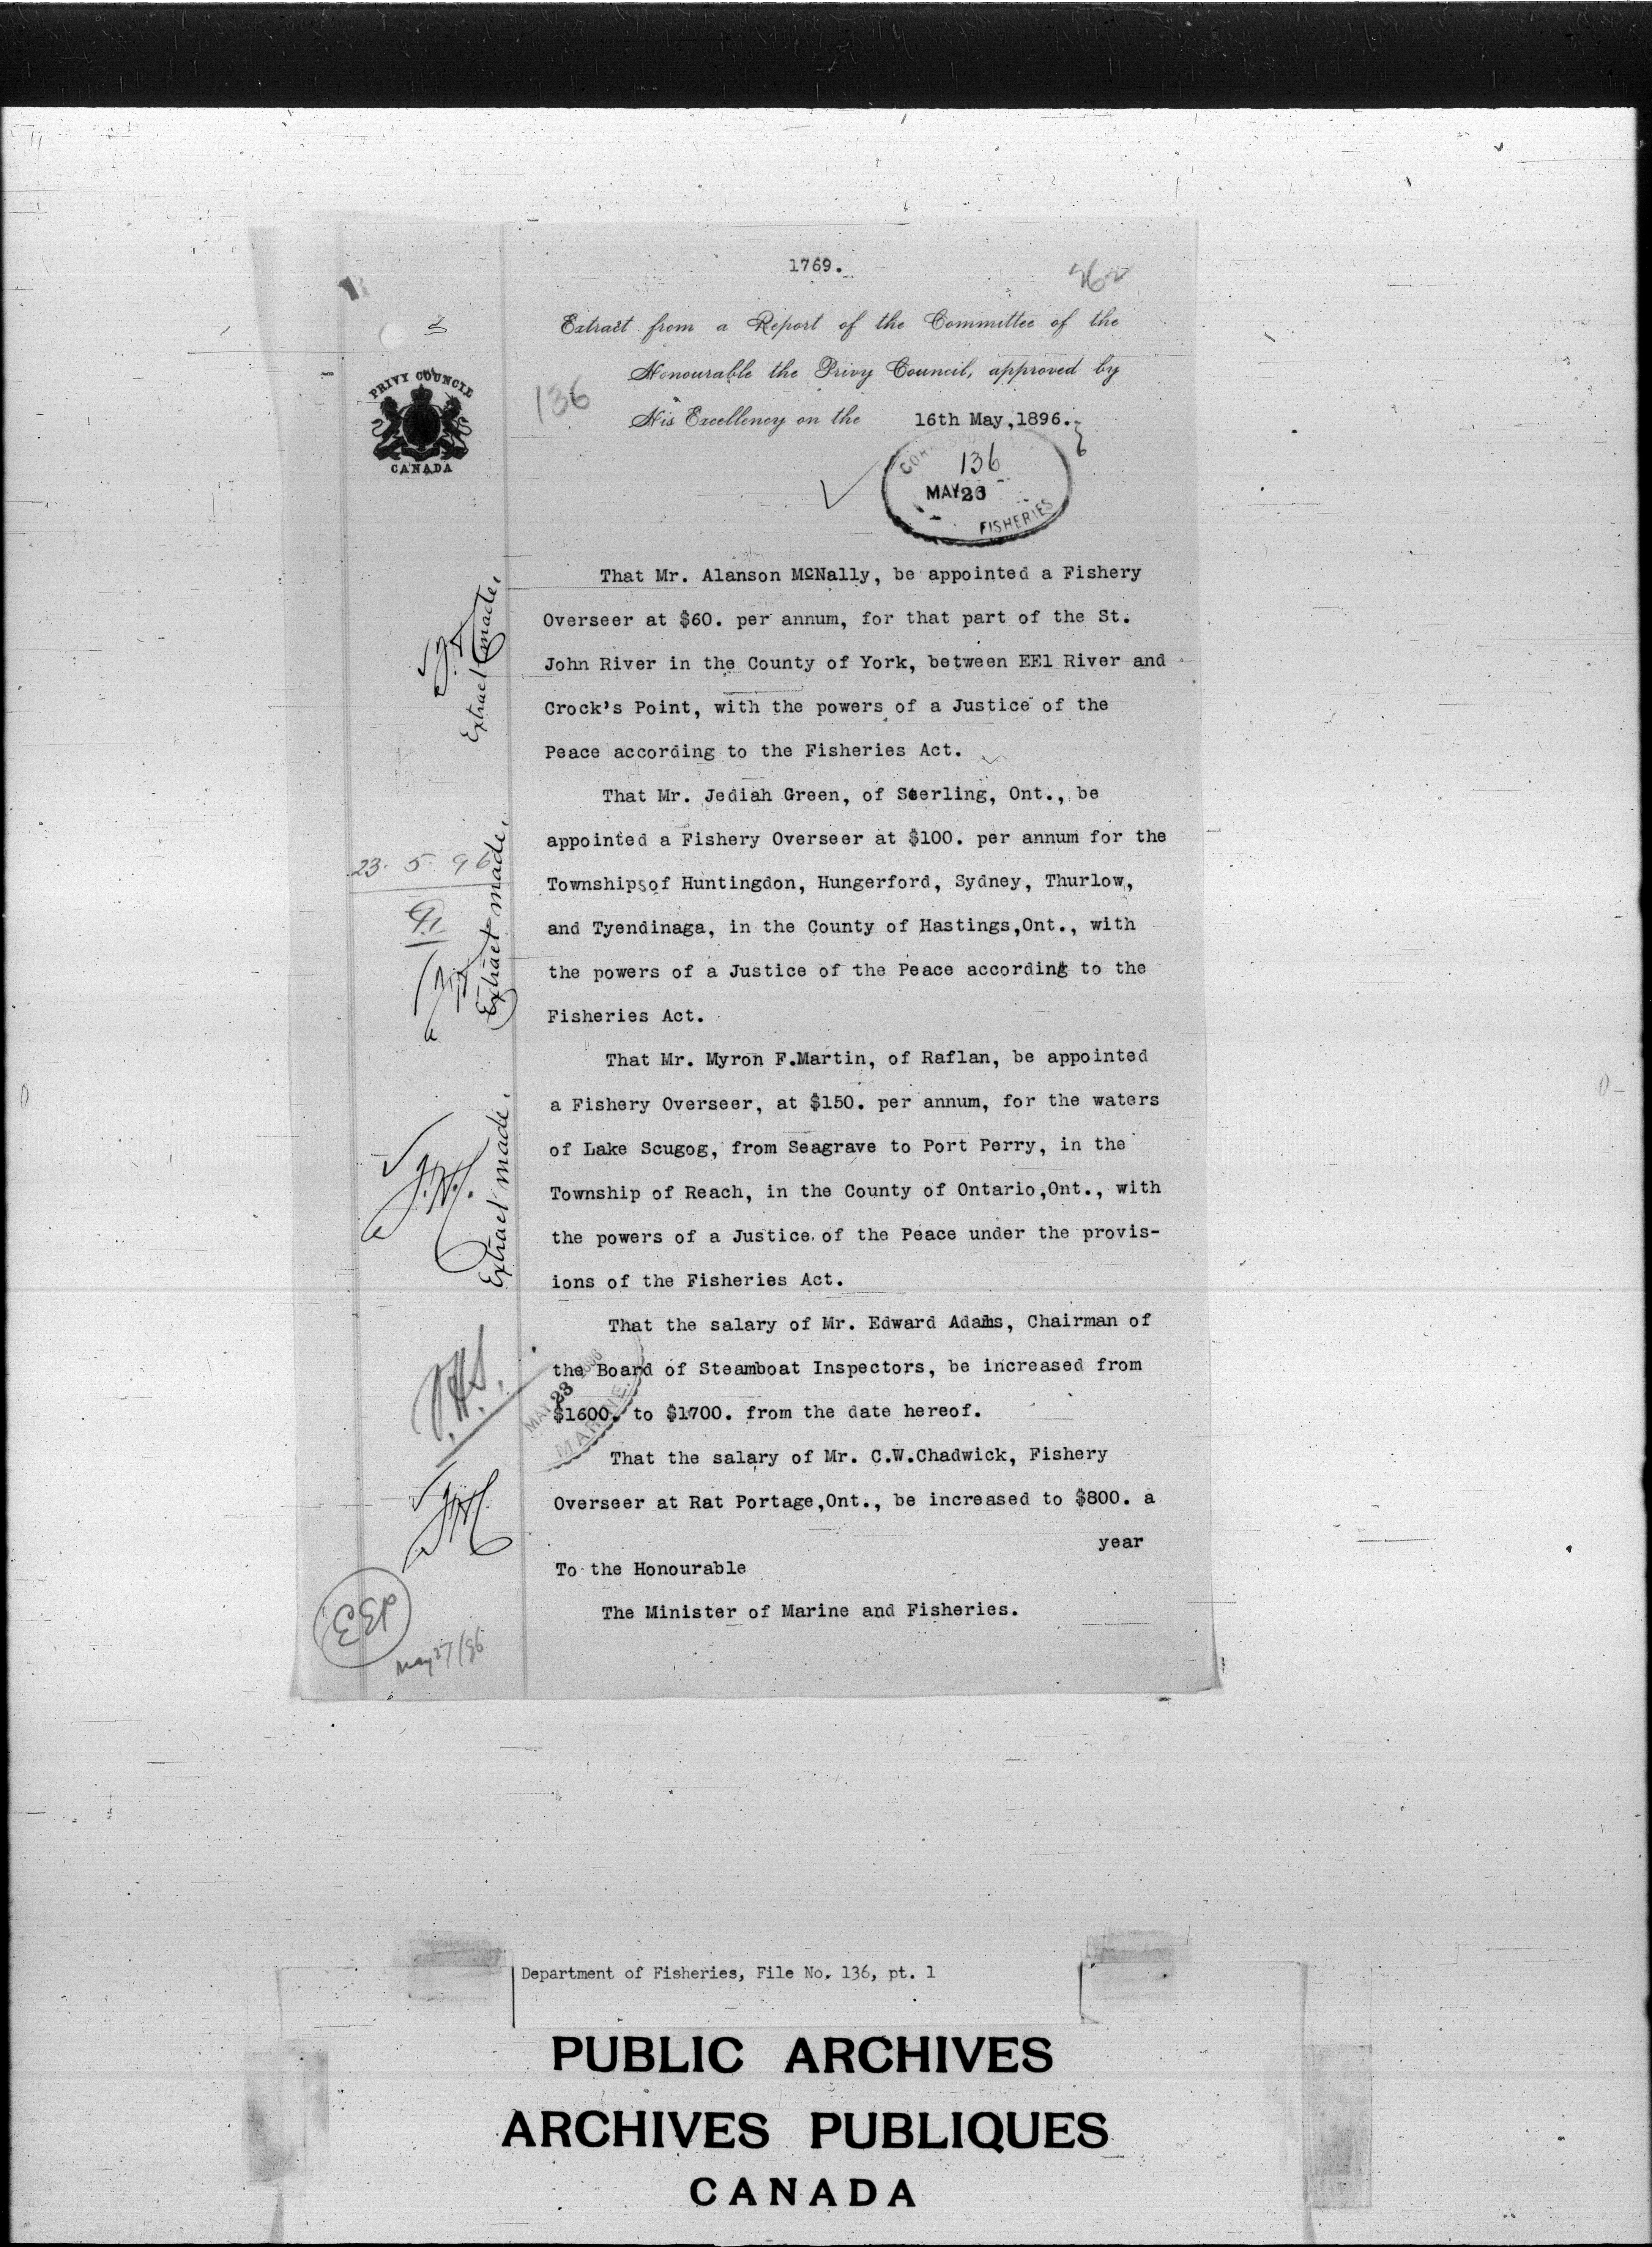 1769.
262
Extract from a Report of the Committee of the
Honourable the Privy Council, approved by
136
His Excellency on the 16th May, 1896.
PRIVY COUNCIL
CANADA
136
MAY 23
FISHERIES
That Mr. Alanson McNally, be appointed a Fishery
Overseer at $60. per annum, for that part of the St.
John River in the County of York, between EEl River and
Crock's Point, with the powers of a Justice of the
Peace according to the Fisheries Act.
Extract made.
That Mr. Jediah Green, of Sterling, Ont., be
appointed a Fishery Overseer at $100. per annum for the
Townships of Huntingdon, Hungerford, Sydney, Thurlow,
and Tyendinaga, in the County of Hastings, Ont., with
the powers of a Justice of the Peace according to the
Fisheries Act.
23. 5. 96
Extract made.
That Mr. Myron F. Martin, of Raflan, be appointed
a Fishery Overseer, at $150. per annum, for the waters
of Lake Scugog, from Seagrave to Port Perry, in the
Township of Reach, in the County of Ontario, Ont., with
the powers of a Justice of the Peace under the provis-
ions of the Fisheries Act.
Extract made.
That the salary of Mr. Edward Adams, Chairman of
the Board of Steamboat Inspectors, be increased from
$1600. to $1700. from the date hereof.
MAY 23
MARINE.
That the salary of Mr. C.W. Chadwick, Fishery
Overseer at Rat Portage, Ont., be increased to $800. a
year
To the Honourable
The Minister of Marine and Fisheries.
EEP
May 27/96
Department of Fisheries, File No. 136, pt. 1
PUBLIC ARCHIVES
ARCHIVES PUBLIQUES
CANADA